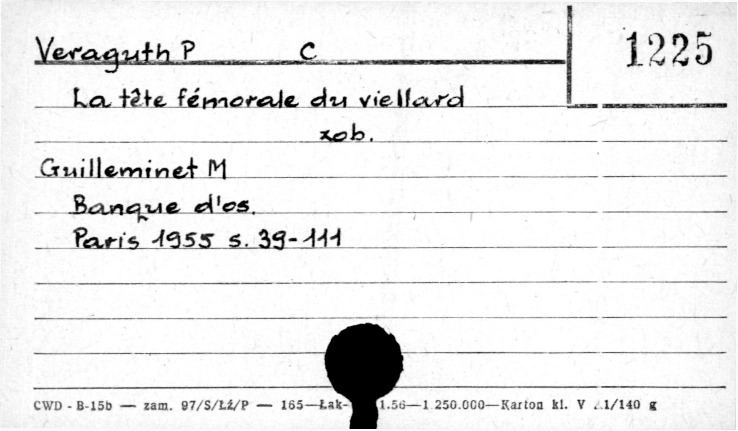 Veraguth P C 1225
La tête fémorale du viellard
zob.
Guilleminet M
Banque d'os.
Paris 1955 s. 39-111
CWD - B-15b — zam. 97/S/Łź/P — 165—Łak- 1.56—1.250.000—Karton kl. V 1/140 g